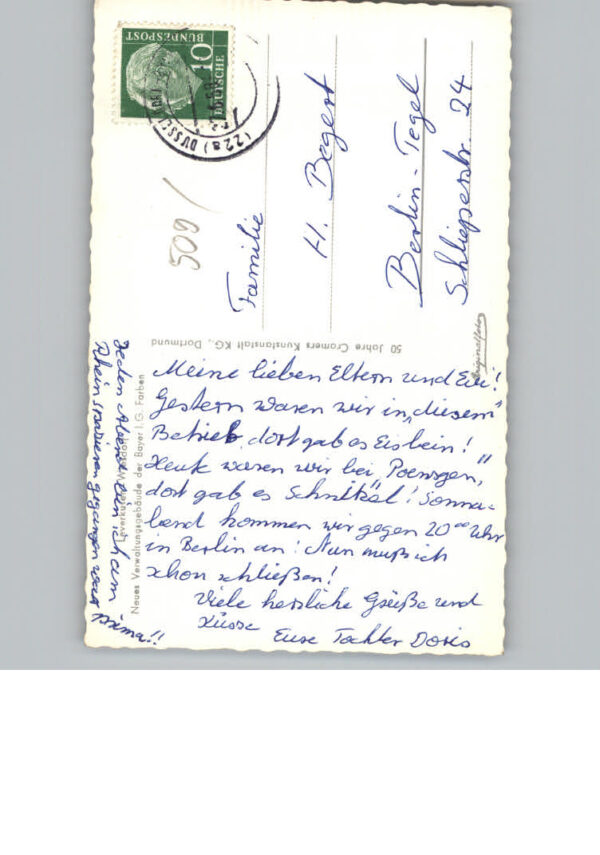 Meine lieben Eltern und Evi!
Gestern waren wir in „diesem"
Betrieb, dort gab es Eisbein!
Heute waren wir bei „Poensgen,"
dort gab es Schnitzel! Sonna-
bend kommen wir gegen 20⁰⁰ Uhr
in Berlin an! Nun muß ich
schon schließen!
Viele herzliche Grüße und
Küsse
Eure Tochter Doris
Jeden Abend bin ich am
Rhein spazieren gegangen
prima!!
Familie
H. Begert
Berlin-Tegel
Schlieperstr. 24
509/
DEUTSCHE
BUNDESPOST
10
(22a) DÜSSEL
50 Jahre Cramers Kunstanstalt KG., Dortmund
Originalfoto
Leverkusen
Neues Verwaltungsgebäude der Bayer I.G. Farben